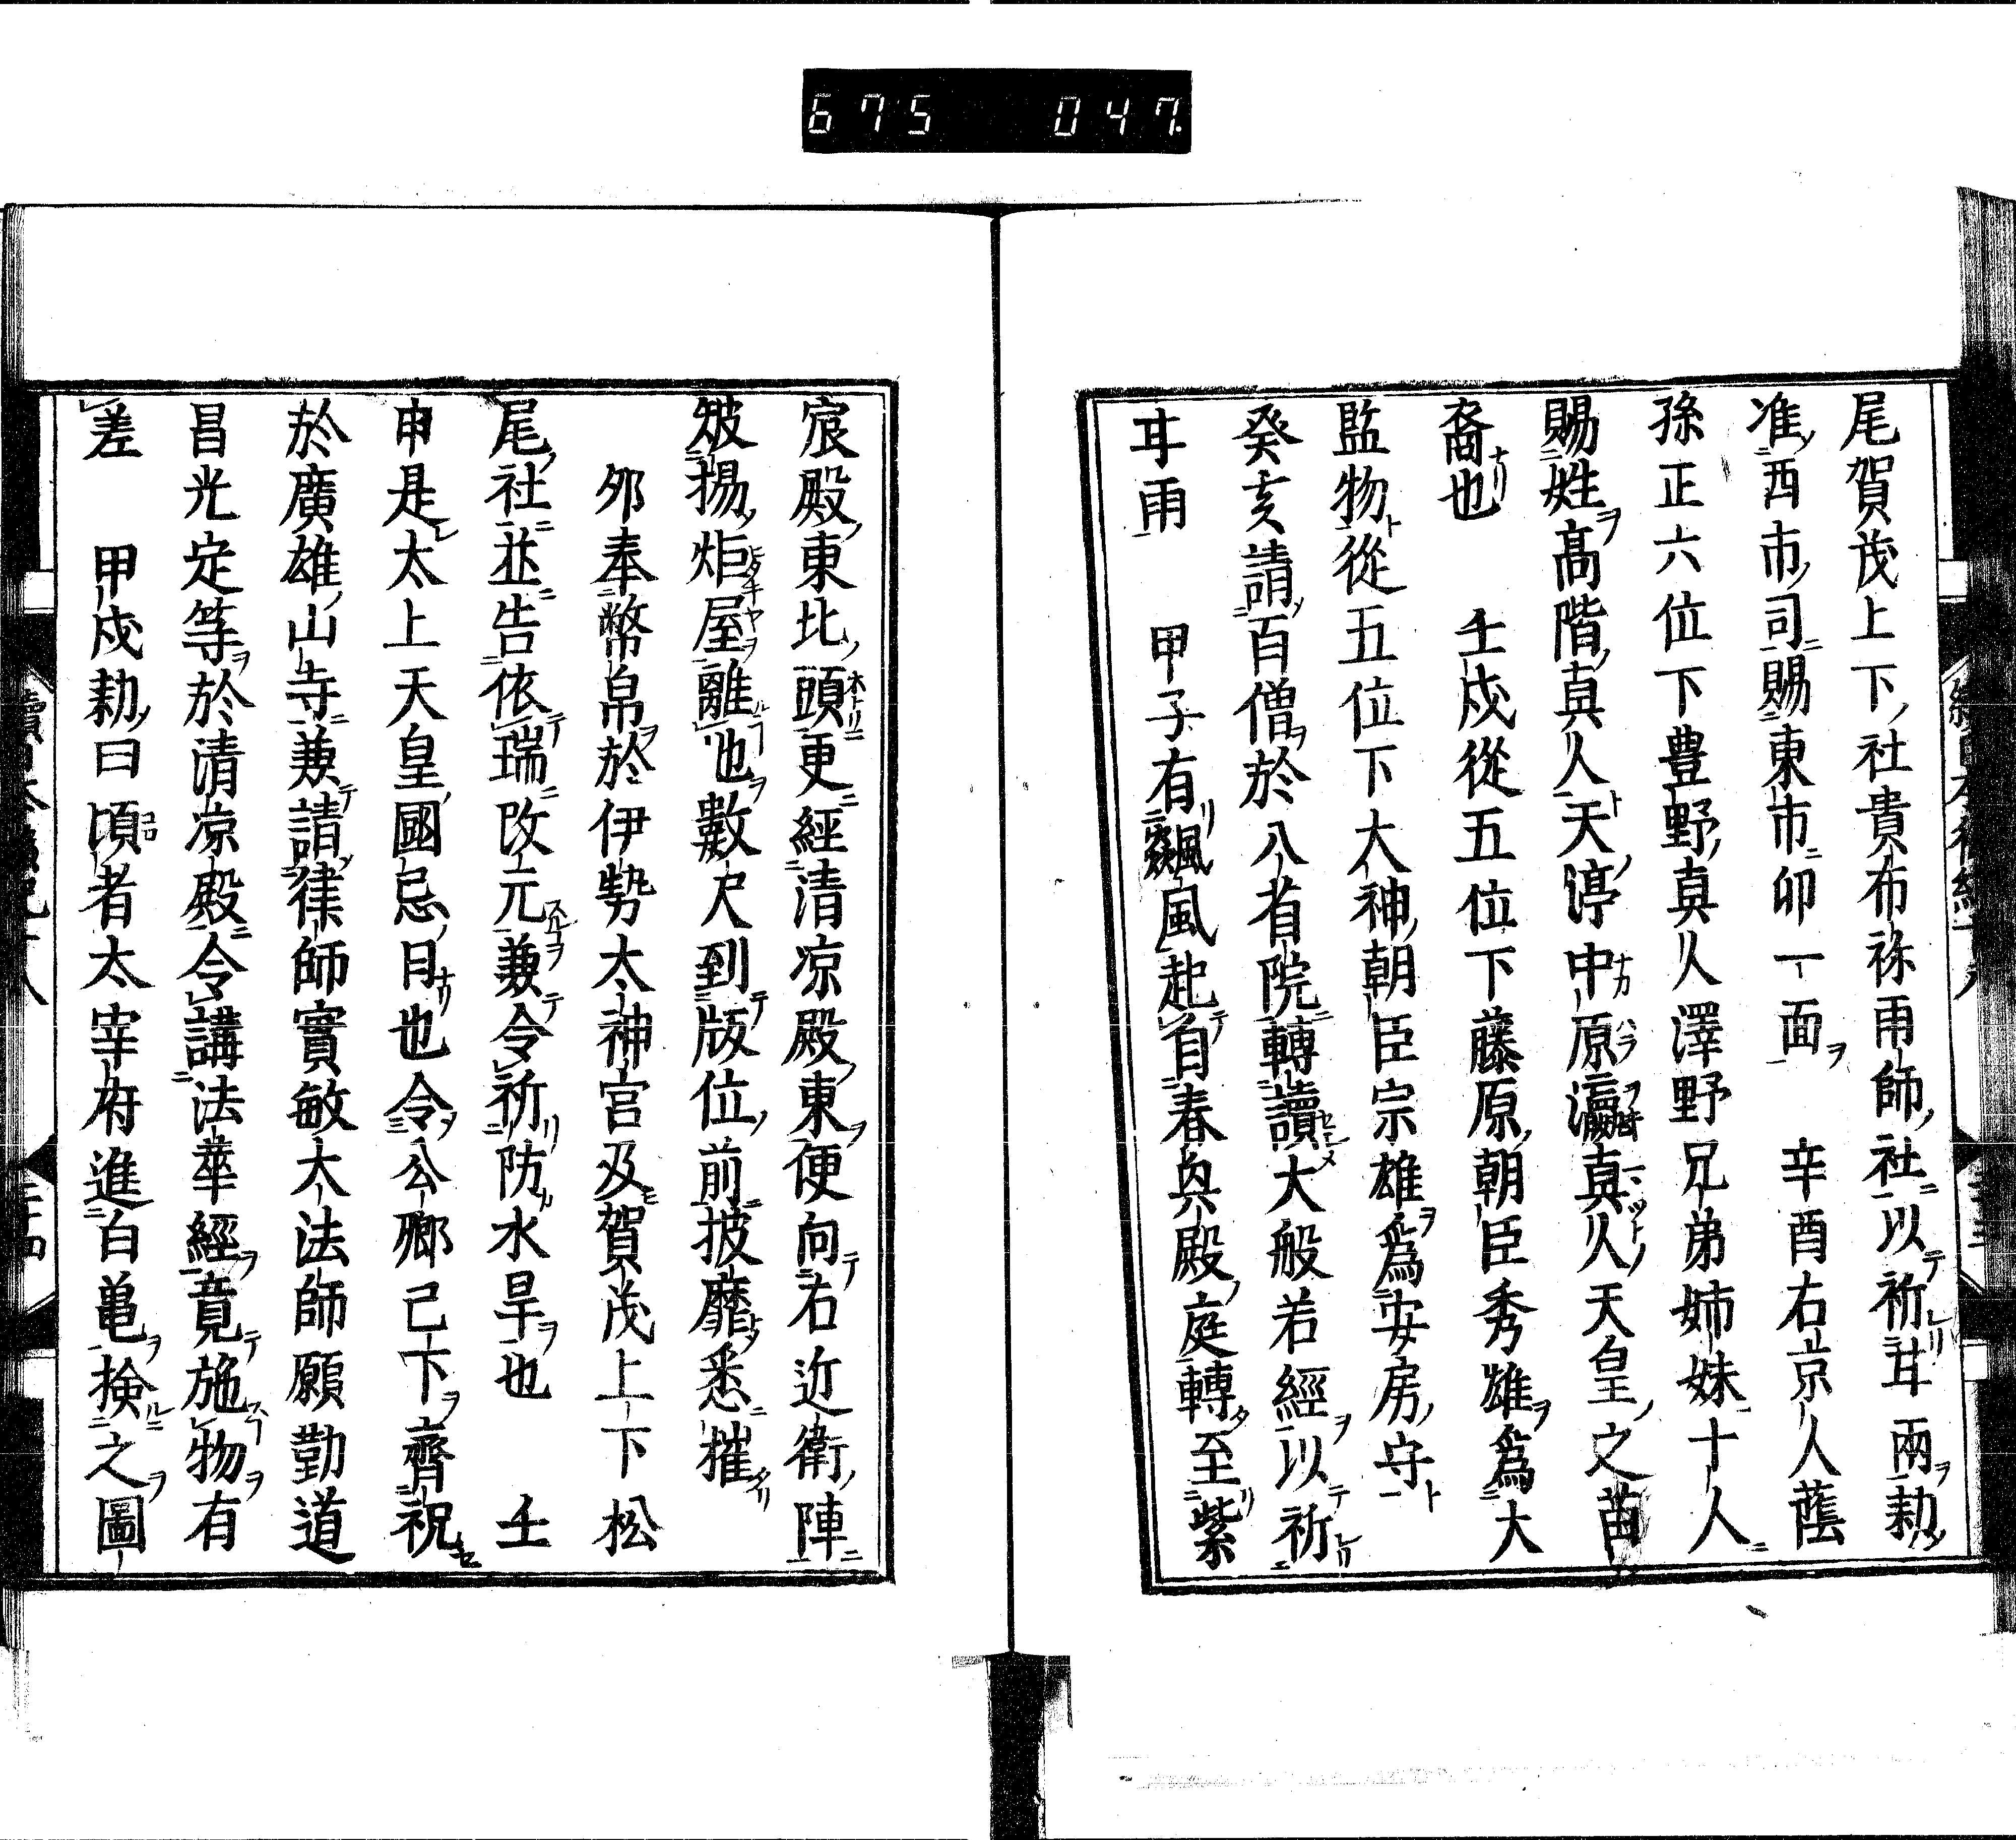 675 047
尾賀茂上下社貴布祢雨師社以祈甘雨勅
准西市司賜東市卯一面　辛酉右京人蔭
孫正六位下豊野真人澤野兄弟姉妹十人
賜姓髙階真人天渟中原瀛真人天皇之苗
裔也　壬戌從五位下藤原朝臣秀雄爲大
監物從五位下大神朝臣宗雄爲安房守
癸亥請百僧於八省院轉讀大般若經以祈
甘雨　甲子有飈風起自春興殿庭轉至紫
宸殿東北頭更經清凉殿東便向右近衛陣
皷揚炬屋離也數尺到版位前披靡悉摧
　夘奉幣帛於伊勢太神宮及賀茂上下松
尾社並告依瑞改元兼令祈防水旱也　壬
申是太上天皇國忌日也令公卿已下齊祝
於廣雄山寺兼請律師實敏大法師願勤道
昌光定等於清凉殿令講法華經竟施物有
差　甲戌勅曰頃者太宰府進白亀検之圖